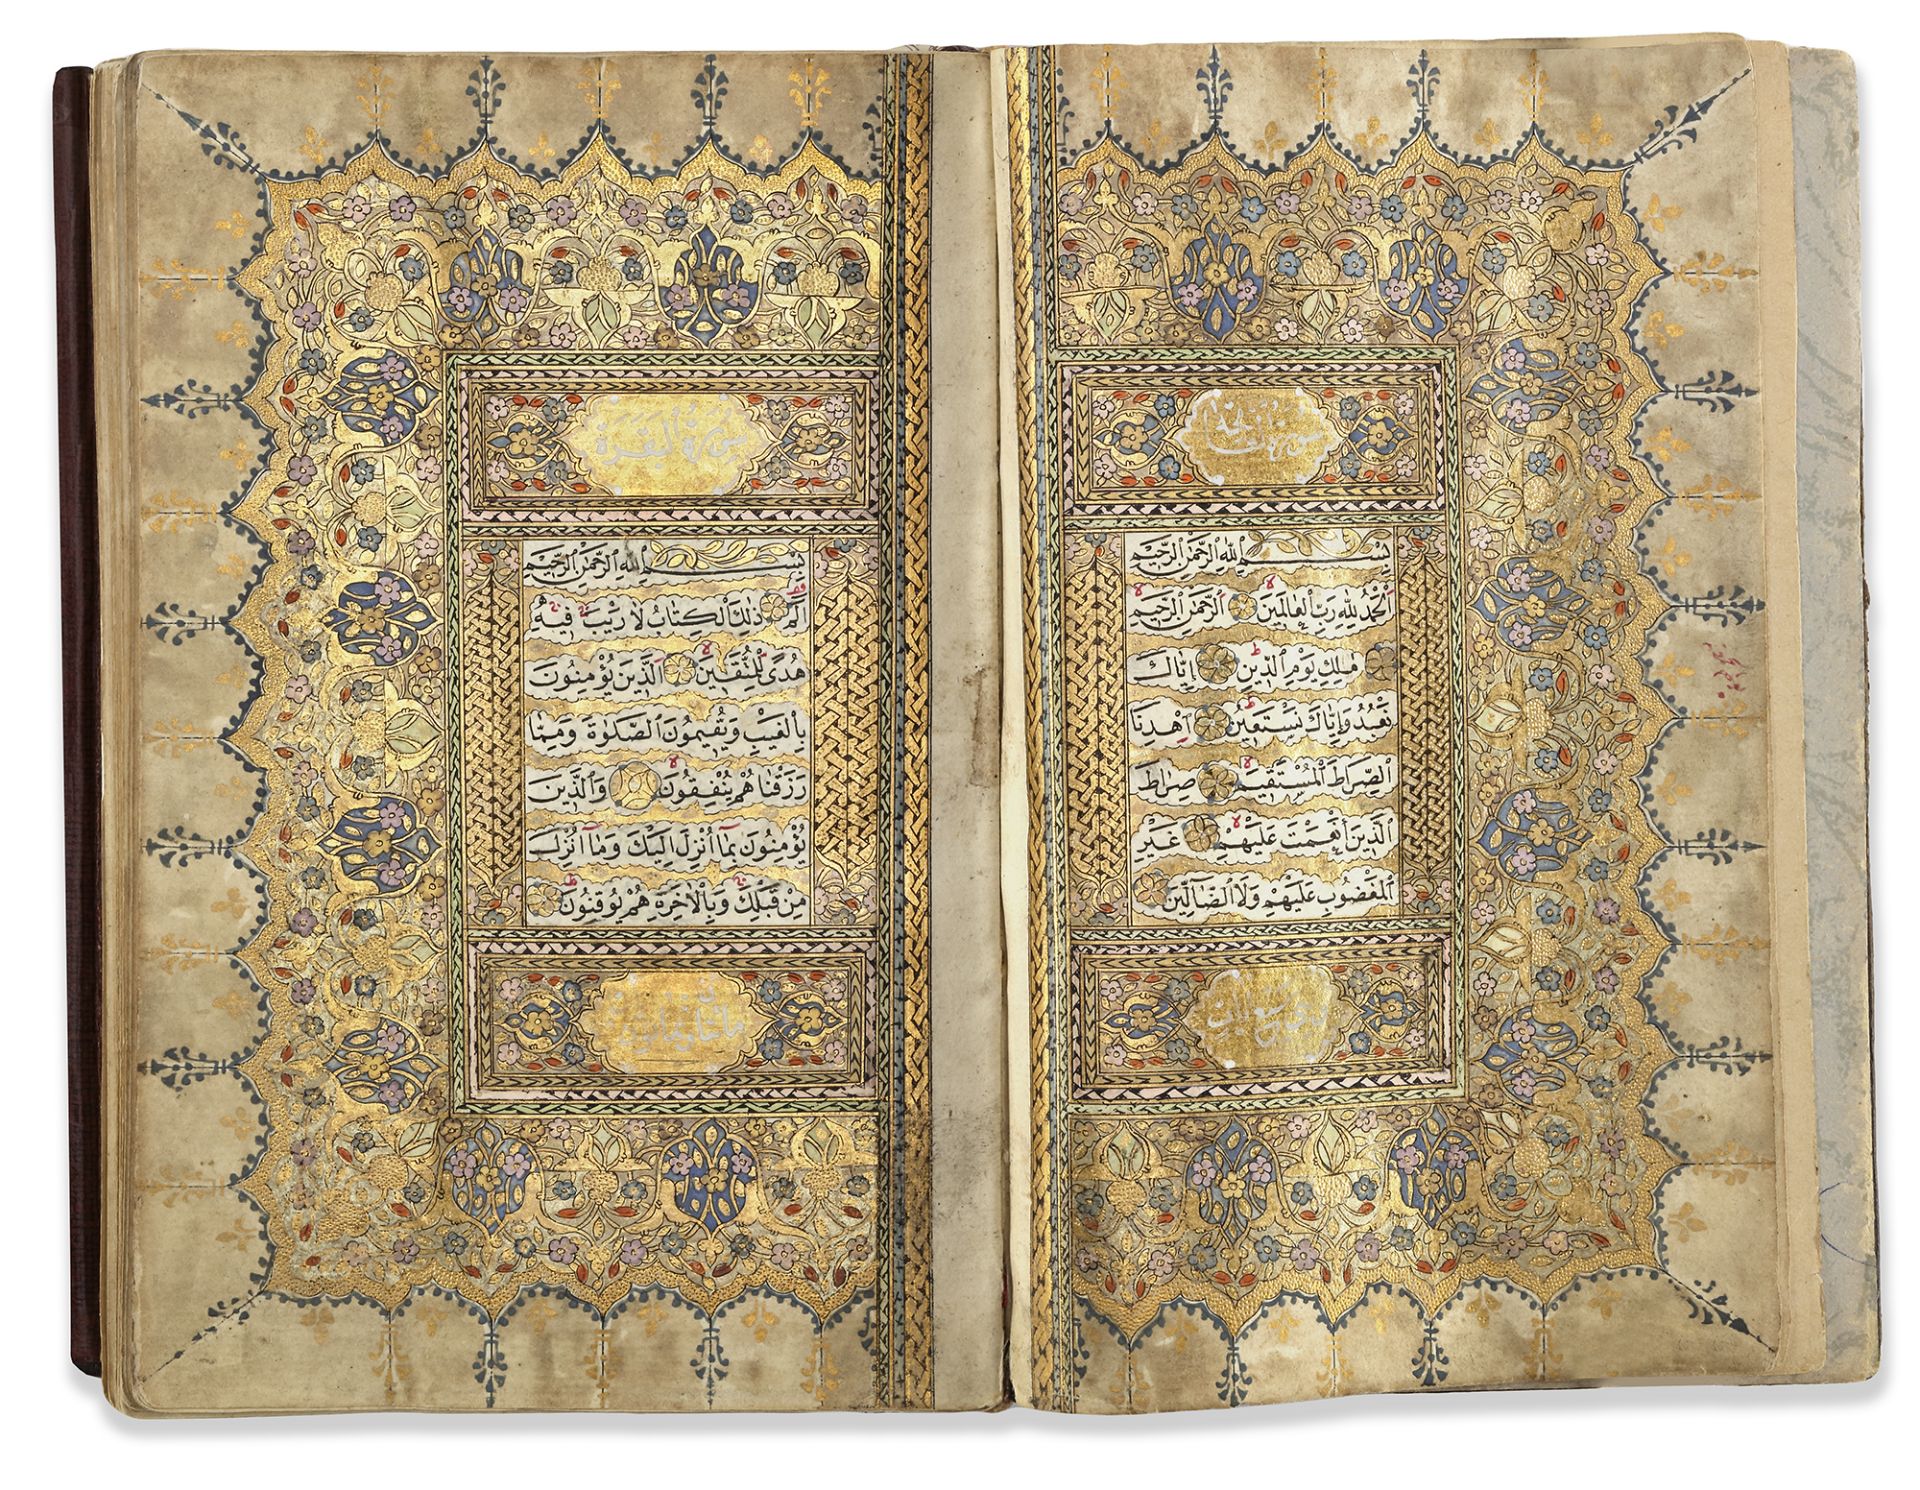 بِسْمِ اللهِ الرَّحْمٰنِ الرَّحِيمِ
اَلْحَمْدُ لِلّٰهِ رَبِّ الْعَالَمِينَ الرَّحْمٰنِ الرَّحِيمِ
مَلِكِ يَوْمِ الدِّينِ اِيَّاكَ
نَعْبُدُ وَاِيَّاكَ نَسْتَعِينُ اِهْدِنَا
الصِّرَاطَ الْمُسْتَقِيمَ صِرَاطَ
الَّذِينَ اَنْعَمْتَ عَلَيْهِمْ غَيْرِ
الْمَغْضُوبِ عَلَيْهِمْ وَلَا الضَّالِّينَ
سورة البقرة
بِسْمِ اللهِ الرَّحْمٰنِ الرَّحِيمِ
الٓمٓ ذٰلِكَ الْكِتَابُ لَا رَيْبَ فِيهِ
هُدًى لِلْمُتَّقِينَ الَّذِينَ يُؤْمِنُونَ
بِالْغَيْبِ وَيُقِيمُونَ الصَّلٰوةَ وَمِمَّا
رَزَقْنَاهُمْ يُنْفِقُونَ وَالَّذِينَ
يُؤْمِنُونَ بِمَا اُنْزِلَ اِلَيْكَ وَمَا اُنْزِلَ
مِنْ قَبْلِكَ وَبِالْاٰخِرَةِ هُمْ يُوقِنُونَ